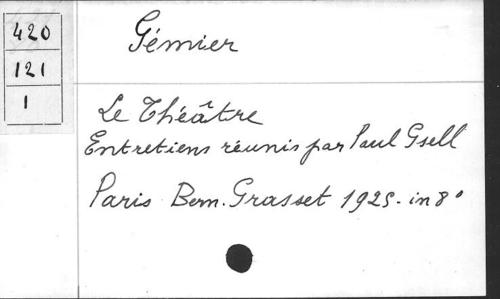 420
121
1
Gémier
Le Théâtre
Entretiens réunis par Paul Gsell
Paris Bern. Grasset 1925- in 8°